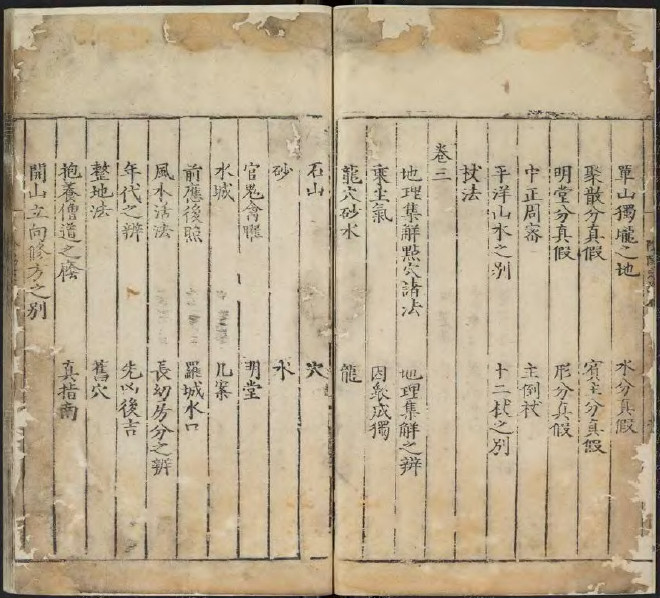 單山獨壠之地 水分真假
聚散分真假 賓主分真假
明堂分真假 形分真假
中正周審 主倒杖
平洋山水之別 十二杖之別
杖法
卷三
地理集解點穴諸法 地理集解之辨
乘生氣 因衆成獨
龍穴砂水 龍
石山 穴
砂 水
官鬼禽曜 明堂
水城 几案
前應後照 羅城水口
風水活法 長幼房分之辨
年代之辨 先凶後吉
整地法 舊穴
抱養僧道之 真指南
開山立向修方之別